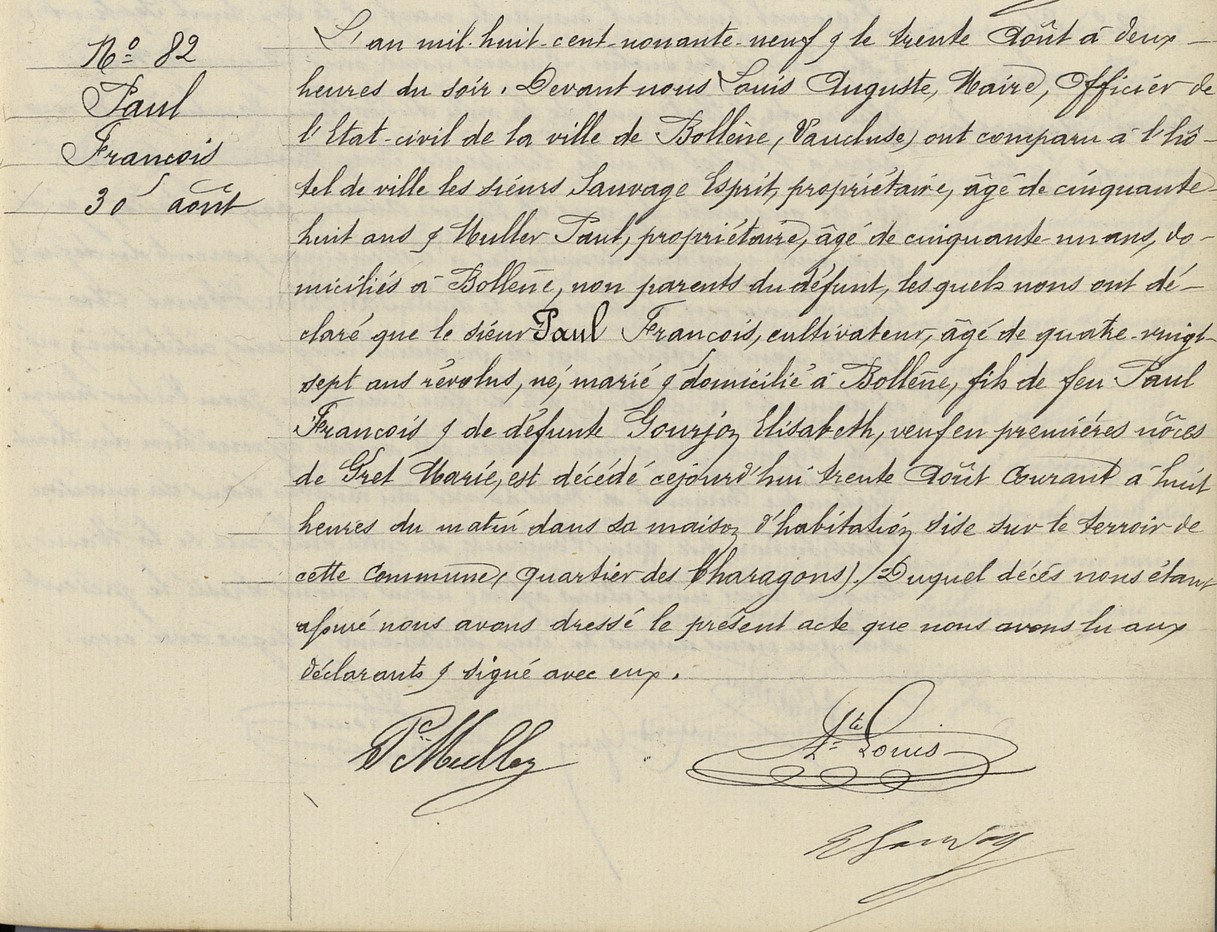 Nº 82
Paul
François
30 août
L'an mil-huit-cent-nonante-neuf & le trente Août à deux
heures du soir. Devant nous Louis Auguste, Maire, Officier de
l'Etat-civil de la ville de Bollène, (Vaucluse) ont comparu à l'hô-
tel de ville les sieurs Sauvage Esprit, propriétaire, âgé de cinquante-
huit ans & Muller Paul, propriétaire, âgé de cinquante-un ans, do-
miciliés à Bollène, non parents du défunt, lesquels nous ont dé-
claré que le sieur Paul François, cultivateur, âgé de quatre-vingt-
sept ans révolus, né, marié & domicilié à Bollène, fils de feu Paul
François & de défunte Gourjon Elisabeth, veuf en premières nôces
de Gret Marie, est décédé cejourd'hui trente Août Courant à huit
heures du matin dans sa maison d'habitation sise sur le terroir de
cette Commune, (quartier des Charagons). Duquel décès nous étant
assuré nous avons dressé le présent acte que nous avons lu aux
déclarants & signé avec eux.
P Muller
Louis
E Sauvage